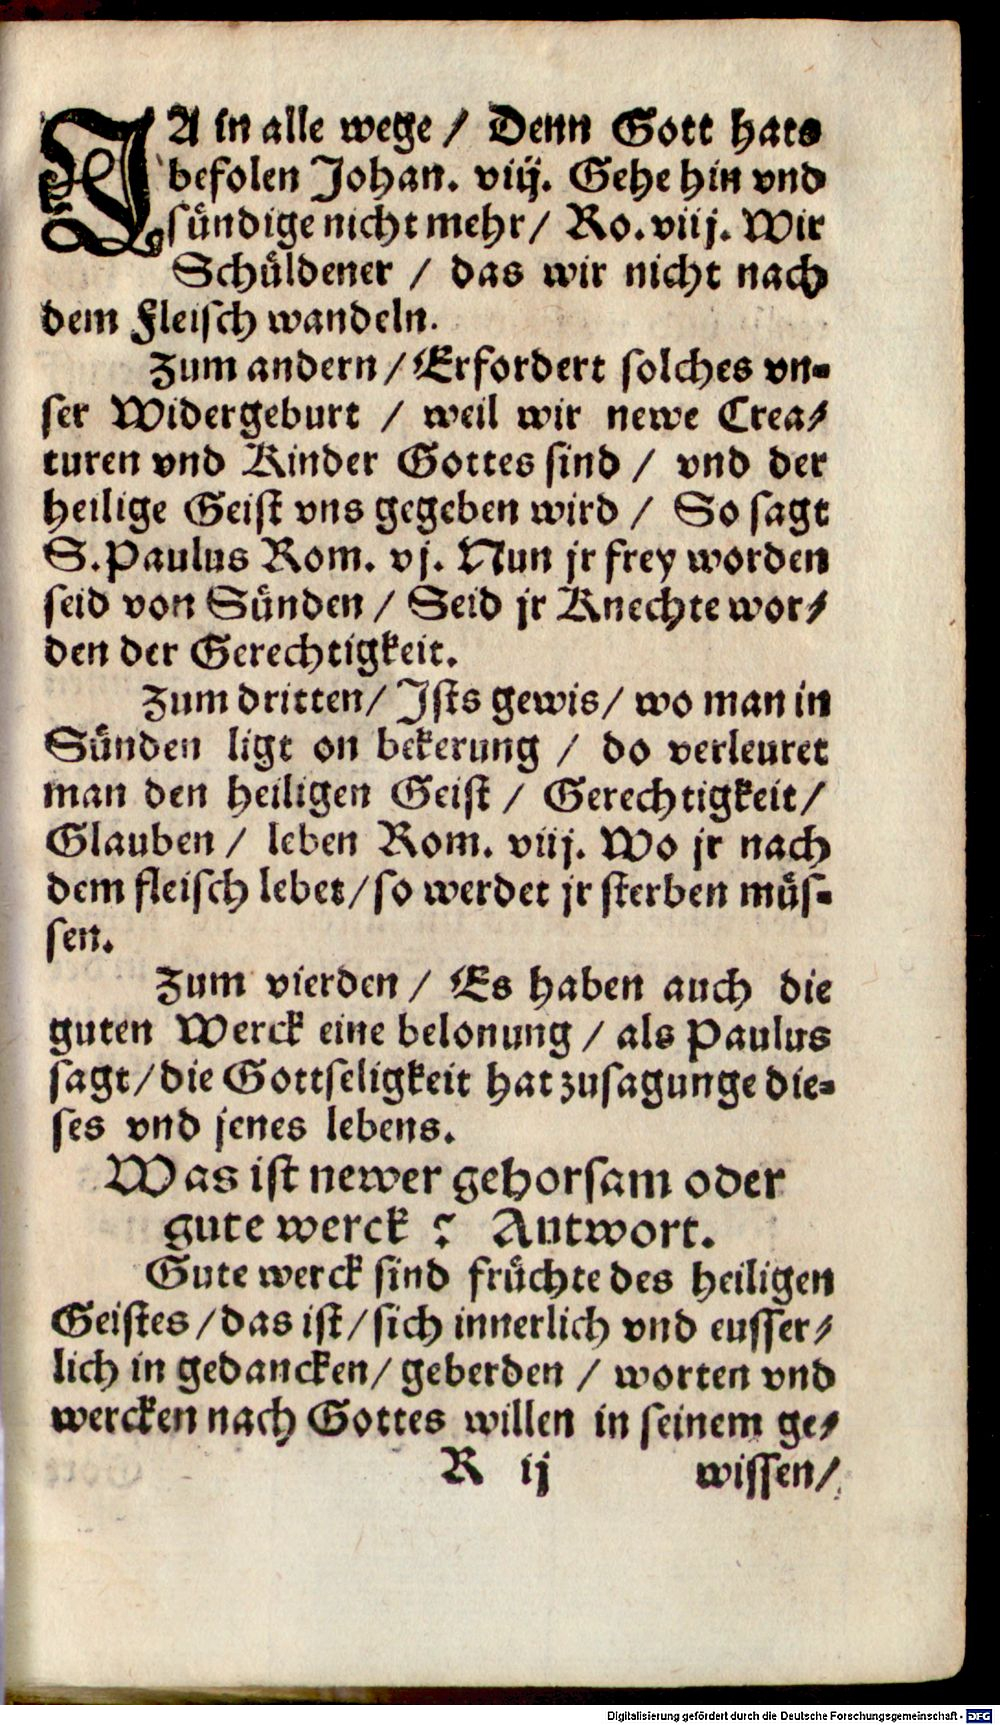 JA in alle wege / Denn Gott hats
befolen Johan. viij. Gehe hin vnd
sündige nicht mehr / Ro. viij. Wir
Schüldener / das wir nicht nach
dem Fleisch wandeln.
Zum andern / Erfordert solches vn-
ser Widergeburt / weil wir newe Crea/
turen vnd Kinder Gottes sind / vnd der
heilige Geist vns gegeben wird / So sagt
S. Paulus Rom. vj. Nun jr frey worden
seid von Sünden / Seid jr Knechte wor/
den der Gerechtigkeit.
Zum dritten / Ists gewis / wo man in
Sünden ligt on bekerung / do verleuret
man den heiligen Geist / Gerechtigkeit /
Glauben / leben Rom. viij. Wo jr nach
dem fleisch lebet / so werdet jr sterben müs-
sen.
Zum vierden / Es haben auch die
guten Werck eine belonung / als Paulus
sagt / die Gottseligkeit hat zusagunge die-
ses vnd jenes lebens.
Was ist newer gehorsam oder
gute werck ? Antwort.
Gute werck sind früchte des heiligen
Geistes / das ist / sich innerlich vnd eusser/
lich in gedancken / geberden / worten vnd
wercken nach Gottes willen in seinem ge/
R ij wissen /
Digitalisierung gefördert durch die Deutsche Forschungsgemeinschaft - DFG